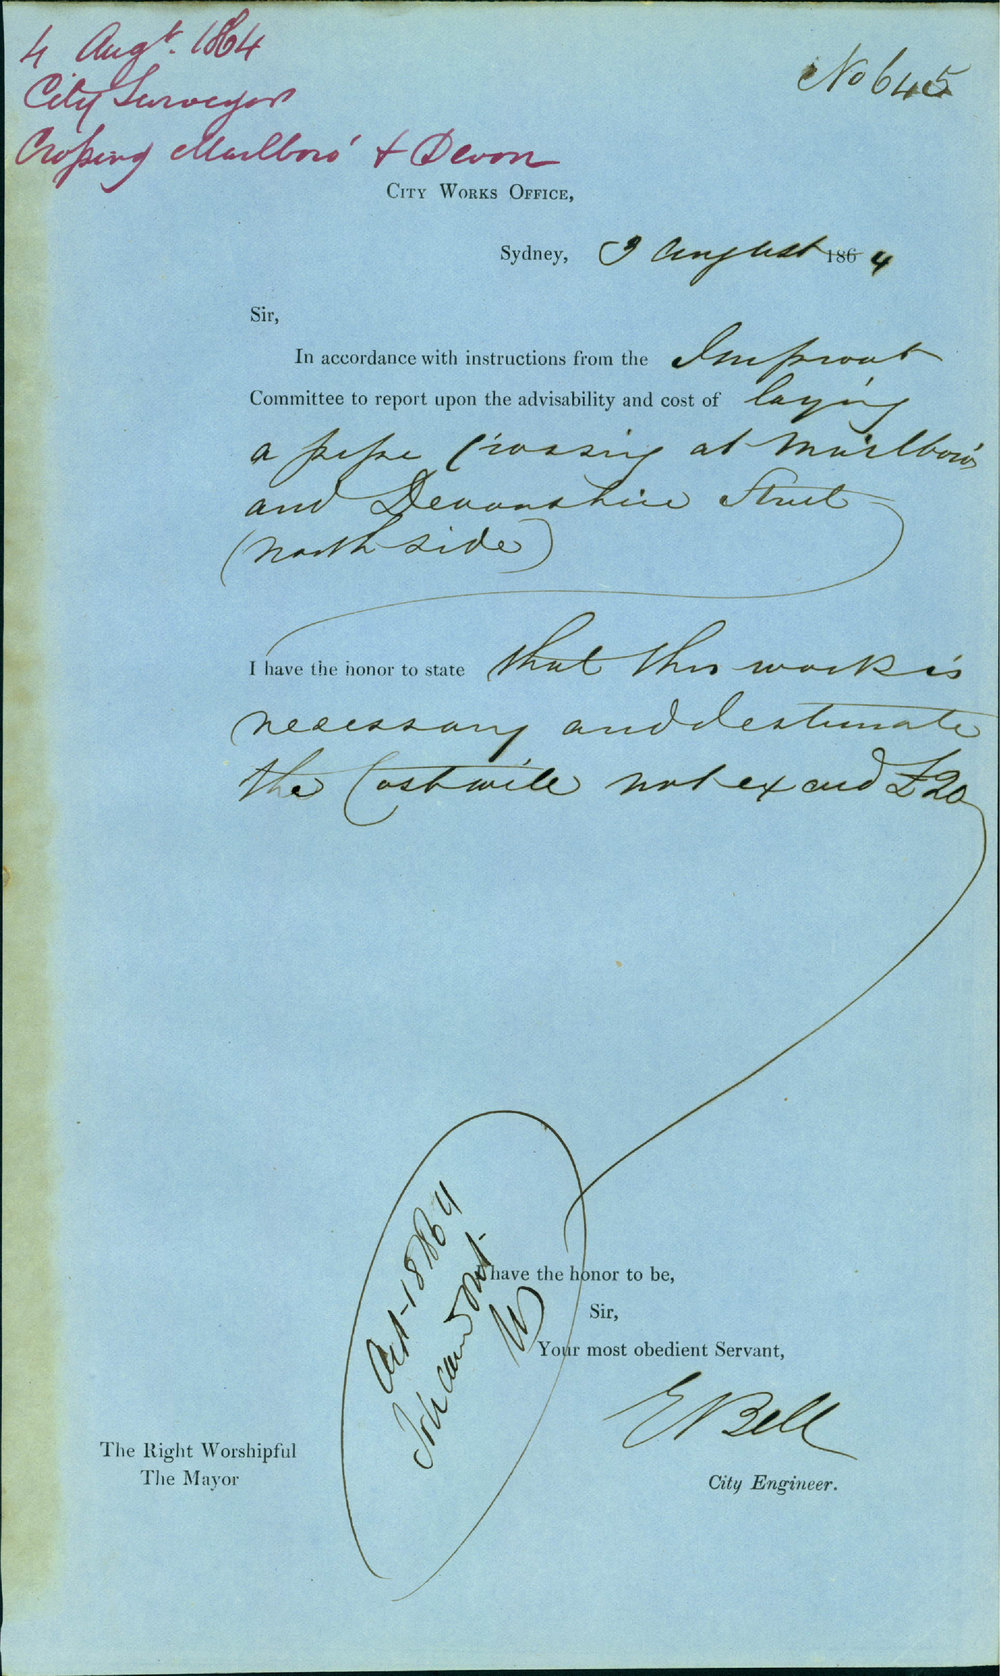 4 Augt. 1864
City Surveyor
Crossing Marlboro' & Devon
No 645
City Works Office,
Sydney, 3 August 1864
Sir,
In accordance with instructions from the Improvt
Committee to report upon the advisability and cost of laying
a pipe Crossing at Marlboro'
and Devonshire Street
(north side)
I have the honor to state that this work is
necessary and I estimate
the Cost will not exceed £20
have the honor to be,
Sir,
Your most obedient Servant,
E Bell
City Engineer.
The Right Worshipful
The Mayor
1864